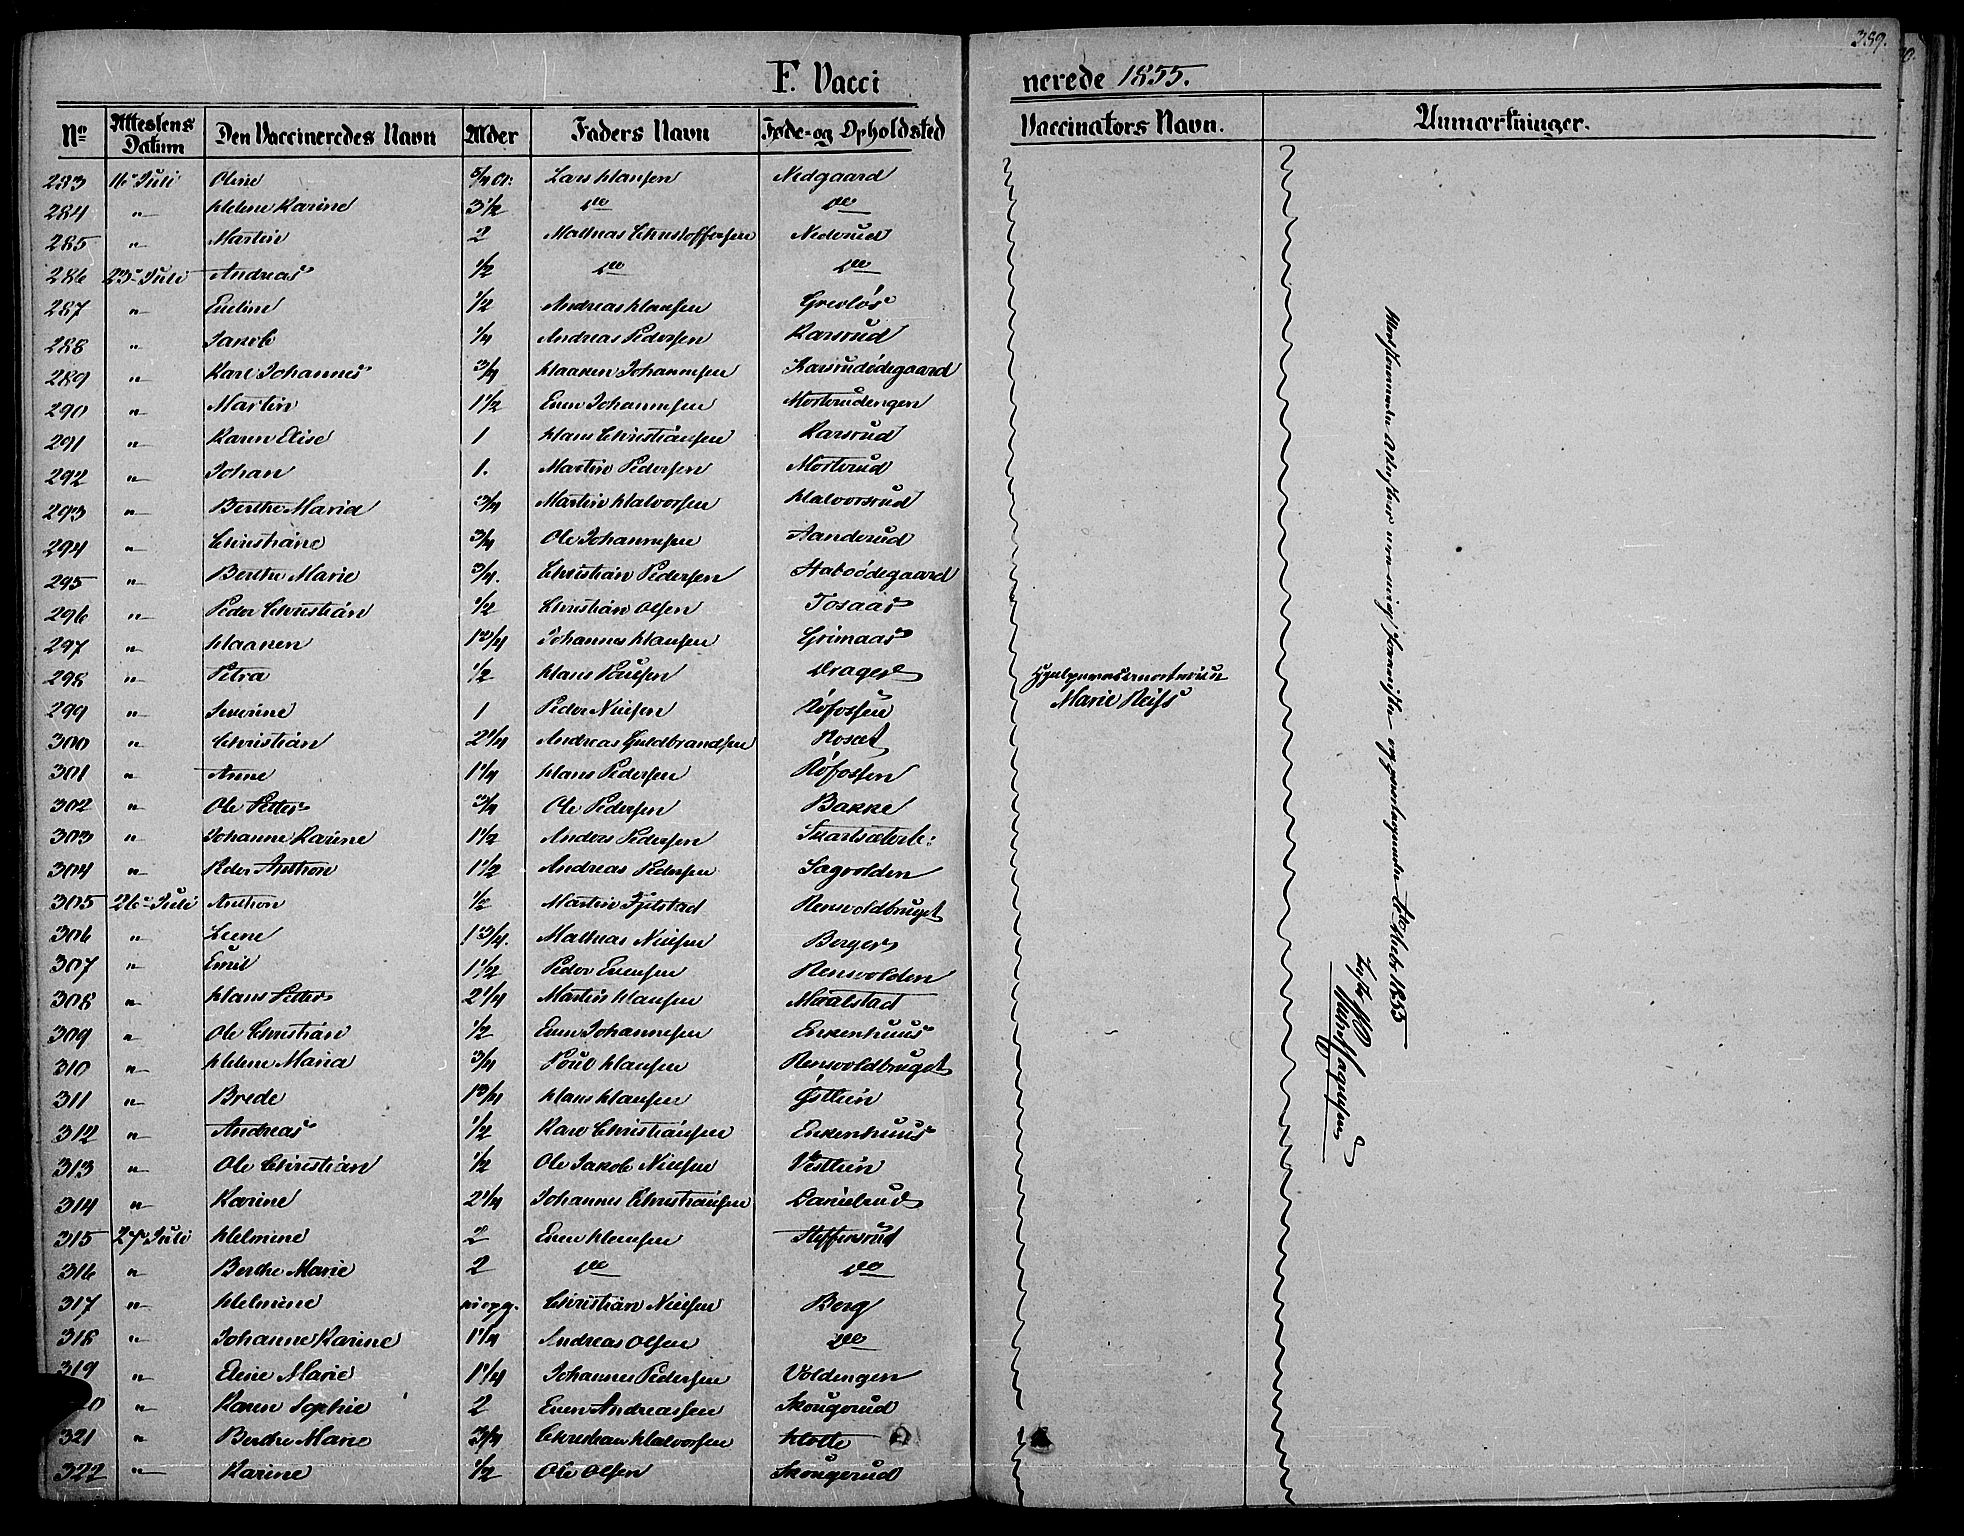 389.
F. Vacci nerede 1855.
No Attestens Datum Den Vaccineredes Navn Alder Faders Navn Føde- og Opholdsted Vaccinators Navn. Anmærkninger.
283 16 Juli Oline 5/4 Lars Hansen Nedgaard
284 " Helene Karine 3 1/2 do do
285 " Martin 2 Mathias Christoffersen Nederud
286 23 Juli Andreas 1/2 do do
287 " Eveline 1/2 Andreas Hansen Grevløs
288 " Jakob 1/4 Andreas Pedersen Karsrud
289 " Karl Johannes 3/4 Haaken Johannesen Karsrudødegaard
290 " Martin 1 1/2 Even Johannesen Morterudengen
291 " Karen Elise 1 Hans Christiansen Karsrud
292 " Johan 1. Martin Pedersen Morterud
293 " Berthe Maria 3/4 Martin Halvorsen Halvorsrud
294 " Christiane 3/4 Ole Johannesen Aanderud
295 " Berthe Marie 3/4. Christian Pedersen Stabødegaard
296 " Peder Christian 1/2 Christian Olsen Tosaas
297 " Haaken 1 3/4 Johannes Hansen Grimaas
298 " Petra 1/2 Hans Poulsen Drager
299 " Severine 1 Peder Nielsen Røfossen
300 " Christian 2 1/4 Andreas Guldbrandsen Rosæt
301 " Anne 1 1/4 Hans Pedersen Røfossen
302 " Ole Petter 3/4 Ole Pedersen Bakke
303 " Johanne Karine 1 1/2 Anders Pedersen
304 " Peder Anthon 1 1/2 Andreas Pedersen Sagvolden
305 26 Juli Anthon 1/2 Martin Fjelstad Rensvoldbruget
306 " Lene 1 3/4. Mathias Nielsen Berger
307 " Emil 1 1/2 Peder Evensen Rensvolden
308 " Hans Petter 2 1/4 Martin Hansen Maalstad
309 " Ole Christian 1/2 Even Johannesen Enkenhuus
310 " Helene Maria 3/4 Poul Hansen Rensvoldbruget
311 " Brede 1 3/4 Hans Hansen Østlien
312 " Andreas 1/2 Karl Christiansen Enkenhuus
313 " Ole Christian 1/2 Ole Jakob Nielsen Vestlien
314 " Karine 2 1/4 Johannes Christiansen Danielrud
315 27 Juli Helmine 2 Even Hansen Steffensrud
316 " Berthe Marie 2 do do
317 " Helmine Christian Nielsen Berg
318 " Johanne Karine 1 1/4 Andreas Olsen do
319 " Eline Marie 1 1/4 Johannes Pedersen Voldengen
20 " Karen Sophie 2 Even Andreassen Skougerud
321 " Berthe Marie 3/4 Christian Halvorsen Holte
322 " Karine 1/2 Ole Olsen Skougerud
Marie Reiss
1855